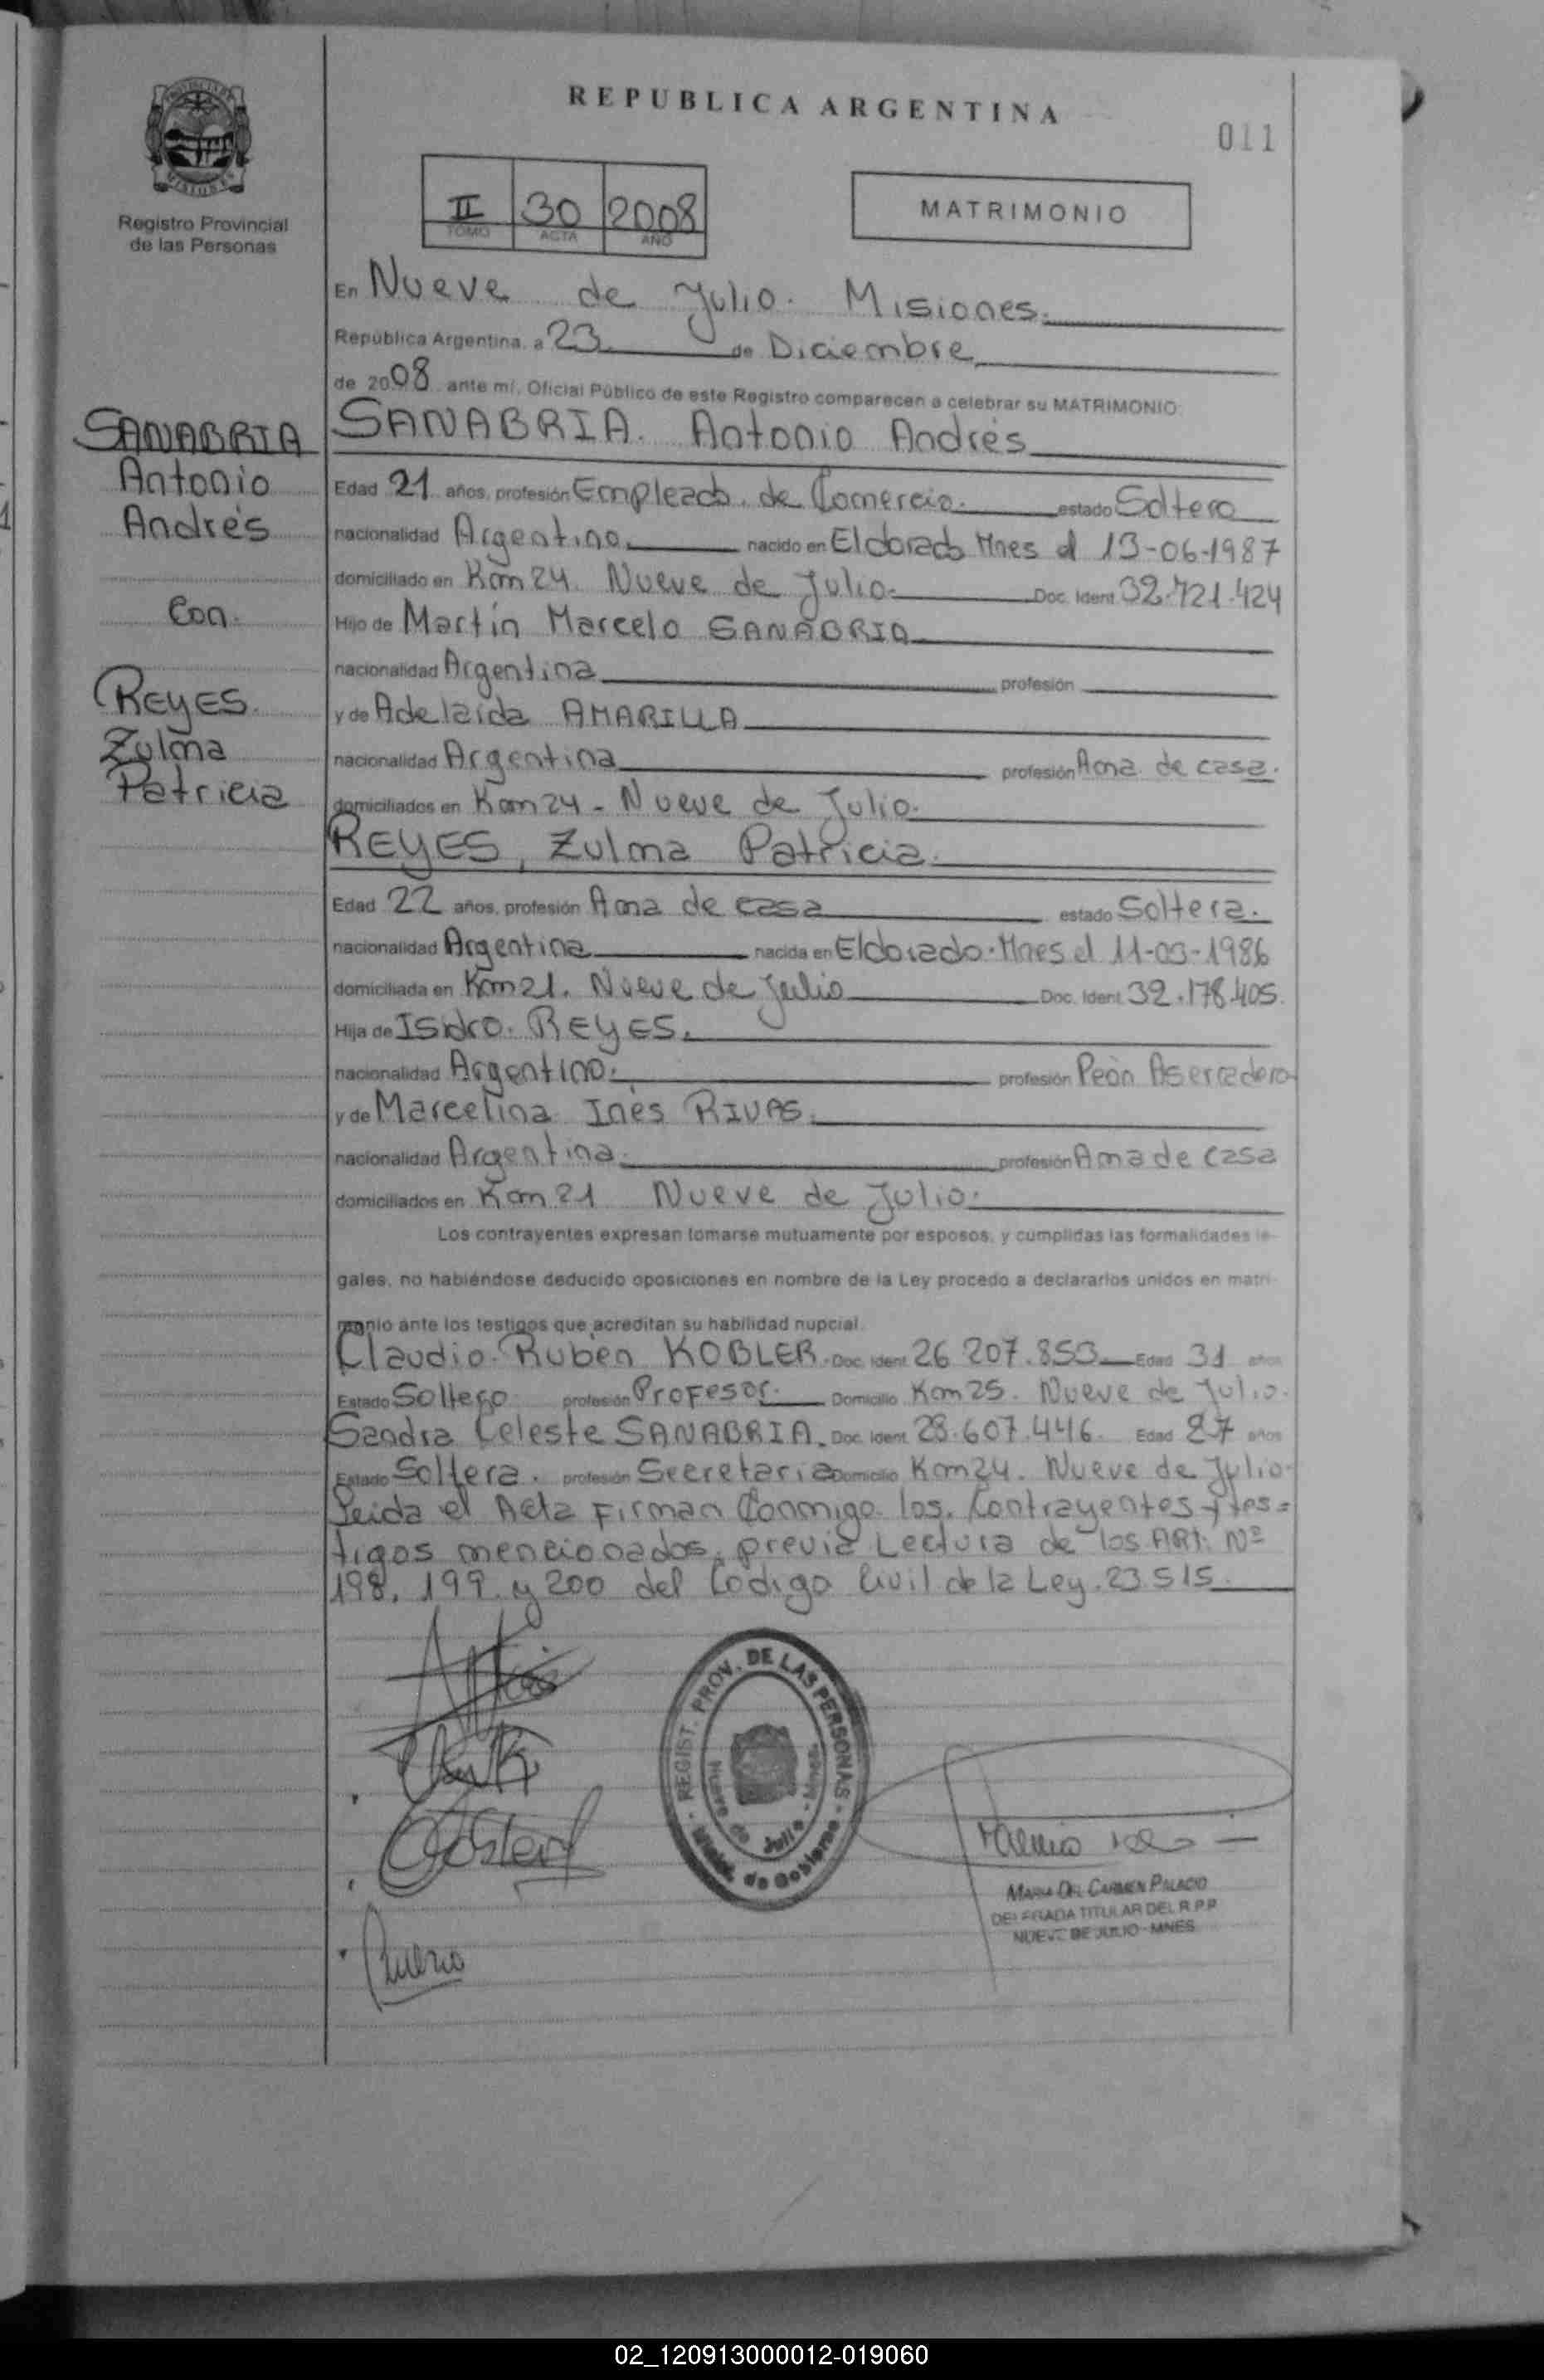 REPUBLICA ARGENTINA
011
PROVINCIA DE MISIONES
Registro Provincial
de las Personas
II 30 2008
TOMO ACTA AÑO
MATRIMONIO
En Nueve de Julio. Misiones.
República Argentina, a 23 de Diciembre
de 2008 ante mí, Oficial Público de este Registro comparecen a celebrar su MATRIMONIO:
SANABRIA
Antonio
Andrés
Con.
REYES.
Zulma
Patricia
SANABRIA. Antonio Andrés
Edad 21 años, profesión Empleado. de Comercio. estado Soltero
nacionalidad Argentino. nacido en Eldorado Mnes el 13-06-1987
domiciliado en Km 24. Nueve de Julio. Doc. Ident. 32.721.424
Hijo de Martín Marcelo SANABRIA
nacionalidad Argentina profesión
y de Adelaida AMARILLA
nacionalidad Argentina profesión Ama de casa.
domiciliados en Km 24 - Nueve de Julio.
REYES, Zulma Patricia.
Edad 22 años, profesión Ama de casa estado Soltera.
nacionalidad Argentina nacida en Eldorado. Mnes el 11-03-1986
domiciliada en Km 21. Nueve de Julio Doc. Ident. 32.178.405.
Hija de Isidro. REYES.
nacionalidad Argentino. profesión Peón Aserradero
y de Marcelina Inés RIVAS.
nacionalidad Argentina. profesión Ama de casa
domiciliados en Km 21 Nueve de Julio.
Los contrayentes expresan tomarse mutuamente por esposos, y cumplidas las formalidades le-
gales, no habiéndose deducido oposiciones en nombre de la Ley procedo a declararlos unidos en matri-
monio ante los testigos que acreditan su habilidad nupcial.
Claudio. Rubén KOBLER. Doc. Ident. 26.207.853 Edad 31 años
Estado Soltero profesión Profesor. Domicilio Km 25. Nueve de Julio.
Sandra Celeste SANABRIA. Doc. Ident. 28.607.446. Edad 27 años
Estado Soltera. profesión Secretaria Domicilio Km 24. Nueve de Julio.
Leida el Acta Firman Conmigo los. Contrayentes y tes=
tigos mencionados, previa Lectura de los ART. Nº
198, 199. y 200 del Codigo Civil de la Ley. 23.515.
REGIST. PROV. DE LAS PERSONAS
Nueve de Julio - Mnes.
Minist. de Gobierno
MARIA DEL CARMEN PALACIO
DELEGADA TITULAR DEL R.P.P
NUEVE DE JULIO - MNES
02_120913000012-019060